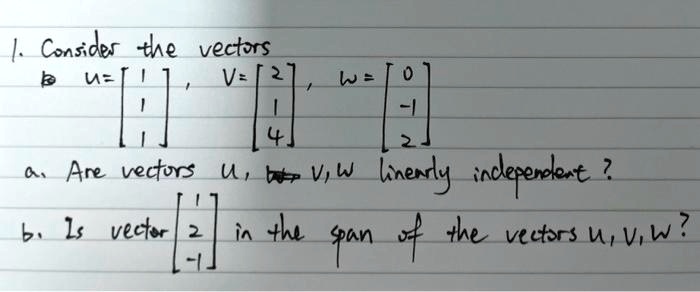 1. Consider the vectors
u = [1 1 1], v = [2 1 4], w = [0 -1 2]
a. Are vectors u, v, w linearly independent?
b. Is vector [1 2 -1] in the span of the vectors u, v, w?